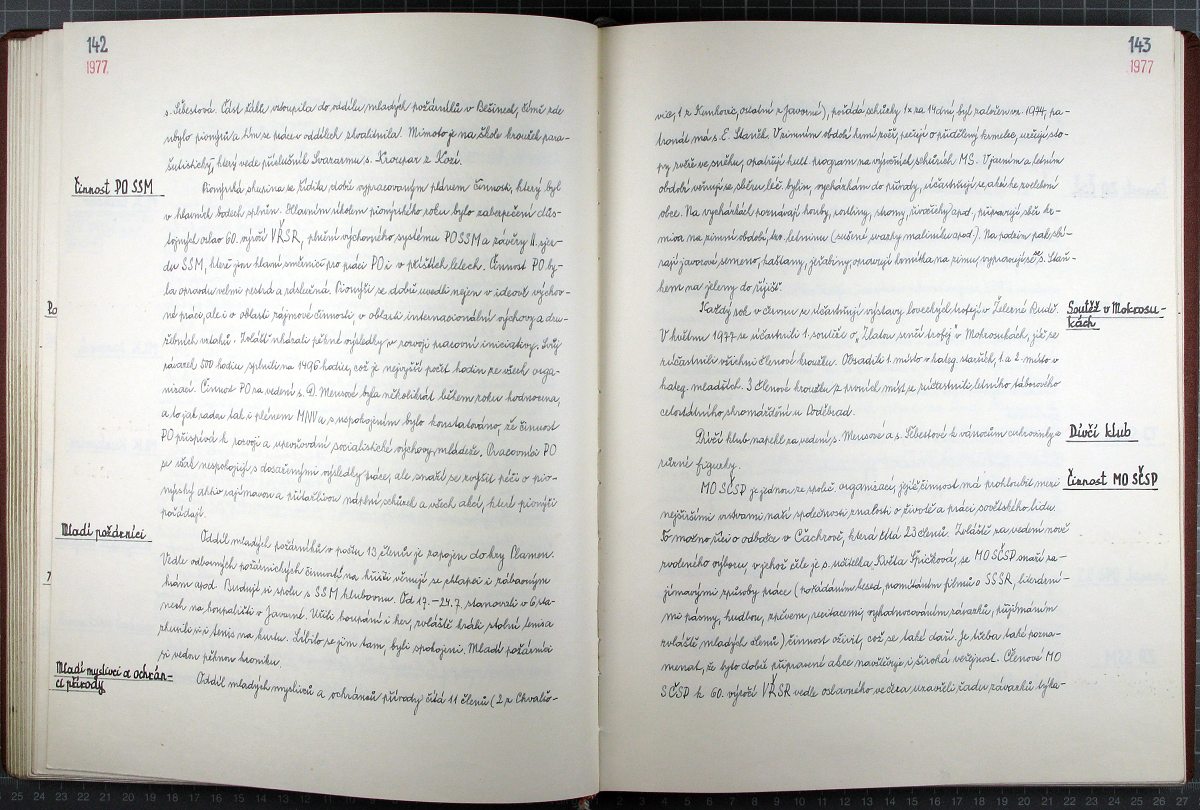 142
1977.
s. Šebestová. Část žáků vstoupila do oddílu mladých požárníků v Běšinech, čímž zde
ubylo pionýrů a tím se práce v oddílech zkvalitnila. Mimoto je na škole kroužek para-
šutistický, který vede příslušník Svazarmu s. Kroupar z Kozí.
Činnost PO SSM
Pionýrská skupina se řídila dobře vypracovaným plánem činnosti, který byl
v hlavních bodech splněn. Hlavním úkolem pionýrského roku bylo zabezpečení důs-
tojných oslav 60. výročí VŘSR, plnění výchovného systému PO SSM a závěry II. sjez-
du SSM, které jsou hlavní směrnicí pro práci PO i v příštích letech. Činnost PO by-
la opravdu velmi pestrá a záslužná. Pionýři se dobře uvedli nejen v ideově výchov-
né práci, ale i v oblasti zájmové činnosti, v oblasti internacionální výchovy a dru-
žebních vztahů. Zvlášť ukázali pěkné výsledky v rozvoji pracovní iniciativy. Svůj
závazek 500 hodin splnili na 1496 hodin, což je nejvyšší počet hodin ze všech orga-
nizací. Činnost PO za vedení s. D. Merusové byla několikrát během roku hodnocena,
a to jak radou tak i plénem MNV a s uspokojením bylo konstatováno, že činnost
PO přispívá k rozvoji a upevňování socialistické výchovy mládeže. Pracovníci PO
se však nespokojují s dosaženými výsledky práce, ale snaží se zvýšit péči o pio-
nýrský aktiv zajímavou a přitažlivou náplní schůzek a všech akcí, které pionýři
pořádají.
Mladí požárníci
Oddíl mladých požárníků v počtu 13 členů je zapojen do hry Plamen.
Vedle odborných požárnických činností na hřišti věnují se chlapci i zábavným
hrám apod. Budují si spolu s SSM klubovnu. Od 17.–24.7. stanovali v 6 sta-
nech na koupališti v Javorné. Užili koupání i her, zvláště hráli stolní tenis a
zkusili si i tenis na kurtu. Líbilo se jim tam, byli spokojeni. Mladí požárníci
si vedou pěknou kroniku.
Mladí myslivci a ochrán-
ci přírody
Oddíl mladých myslivců a ochránců přírody čítá 11 členů (2 z Chvalšo-
143
1977
vic, 1 z Kunkovic, ostatní z Javorné), pořádá schůzky 1x za 14 dní, byl založen v r. 1974, pa-
tronát má s. E. Staněk. V zimním období krmí zvěř, pečují o přidělený krmelec, určují sto-
py zvěře ve sněhu, opatřují kult. program na výročních schůzích MS. V jarním a letním
období věnují se sběru léč. bylin, vycházkám do přírody, účastňují se akcí ke zvelebení
obce. Na vycházkách poznávají houby, rostliny, stromy, živočichy apod., připravují sběr kr-
miva na zimní období, tzv. letninu (sušené svazky maliníku apod.). Na podzim pak sbí-
rají javorové semeno, kaštany, jeřabiny, opravují krmítka na zimu, vypravují se se s. Staň-
kem na jeleny do říjišť.
Soutěž v Mokrosu-
kách
Každý rok v červnu se účastňují výstavy loveckých trofejí v Železné Rudě.
V květnu 1977 se účastnili 1. soutěže o „Zlatou srnčí trofej" v Mokrosukách, jíž se
zúčastnili všichni členové kroužku. Obsadili 1. místo v kateg. starších, 1. a 2. místo v
kateg. mladších. 3 členové kroužku z prvních míst se zúčastnili letního táborového
celostátního shromáždění u Poděbrad.
Dívčí klub
Dívčí klub napekl za vedení s. Merusové a s. Šebestové k vánocům cukrovinky a
různé figurky.
Činnost MO SČSP
MO SČSP je jednou ze společ. organizací, jejíž činnost má prohloubit mezi
nejširšími vrstvami naší společnosti znalosti o životě a práci sovětského lidu.
To možno říci o odbočce v Čachrově, která čítá 23 členů. Zvláště za vedení nově
zvoleného výboru, v jehož čele je s. učitelka Květa Špičková, se MO SČSP snaží za-
jímavými způsoby práce (pořádáním besed, promítáním filmů o SSSR, literární-
mi pásmy, hudbou, zpěvem, recitacemi, vyhodnocováním závazků, přijímáním
zvláště mladých členů) činnost oživit, což se také daří. Je třeba také pozna-
menat, že tyto dobře připravené akce navštěvuje i široká veřejnost. Členové MO
SČSP k 60. výročí VŘSR vedle oslavného večera uzavřeli řadu závazků týka-